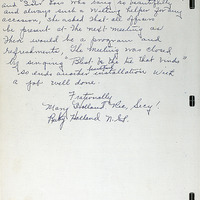 and always such a willing helper for any
occasion, she asked that all officers
be present at the next meeting as
there would be a program and
refreshments. The meeting was closed
by singing "Blest be the tie that binds"
so ends another installation with
a job well done.
Fraternally
Mary Holland Secy!
Ruby Holland N.G.